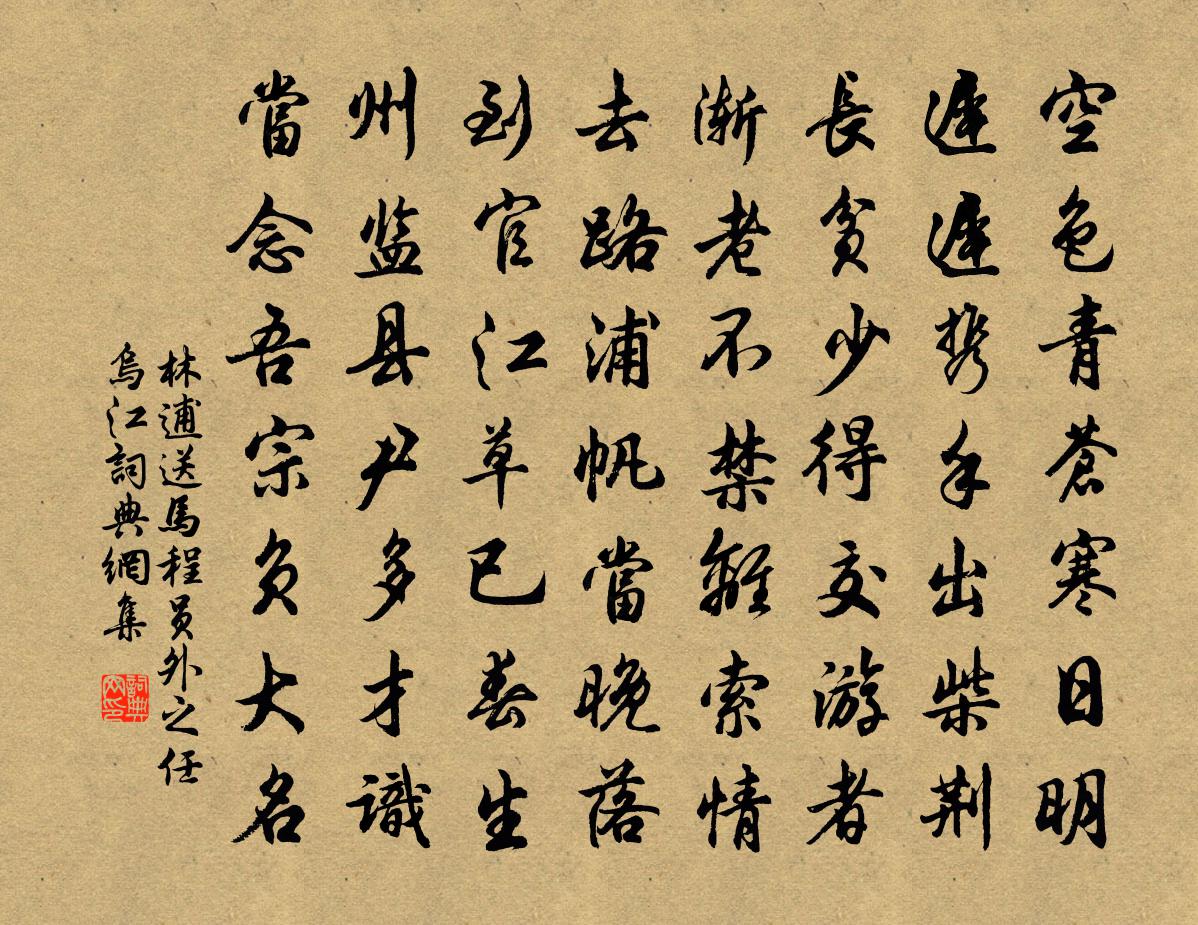 空色青蒼寒日明
遲遲携手出柴荆
長貧少得交游者
漸老不禁離索情
去路浦帆當晚落
到官江草已春生
州监县尹多才識
當念吾宗负大名
林逋送馬程员外之任
烏江詞典網集
詞典网印